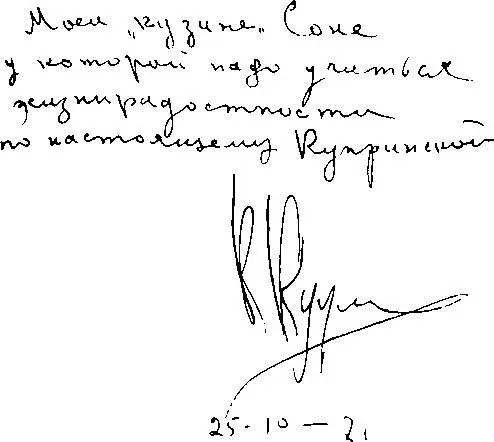 Моей „кузине" Соне
у которой надо учиться
жизнирадостности
по настоящему Купринской
К. Купри
25-10-71